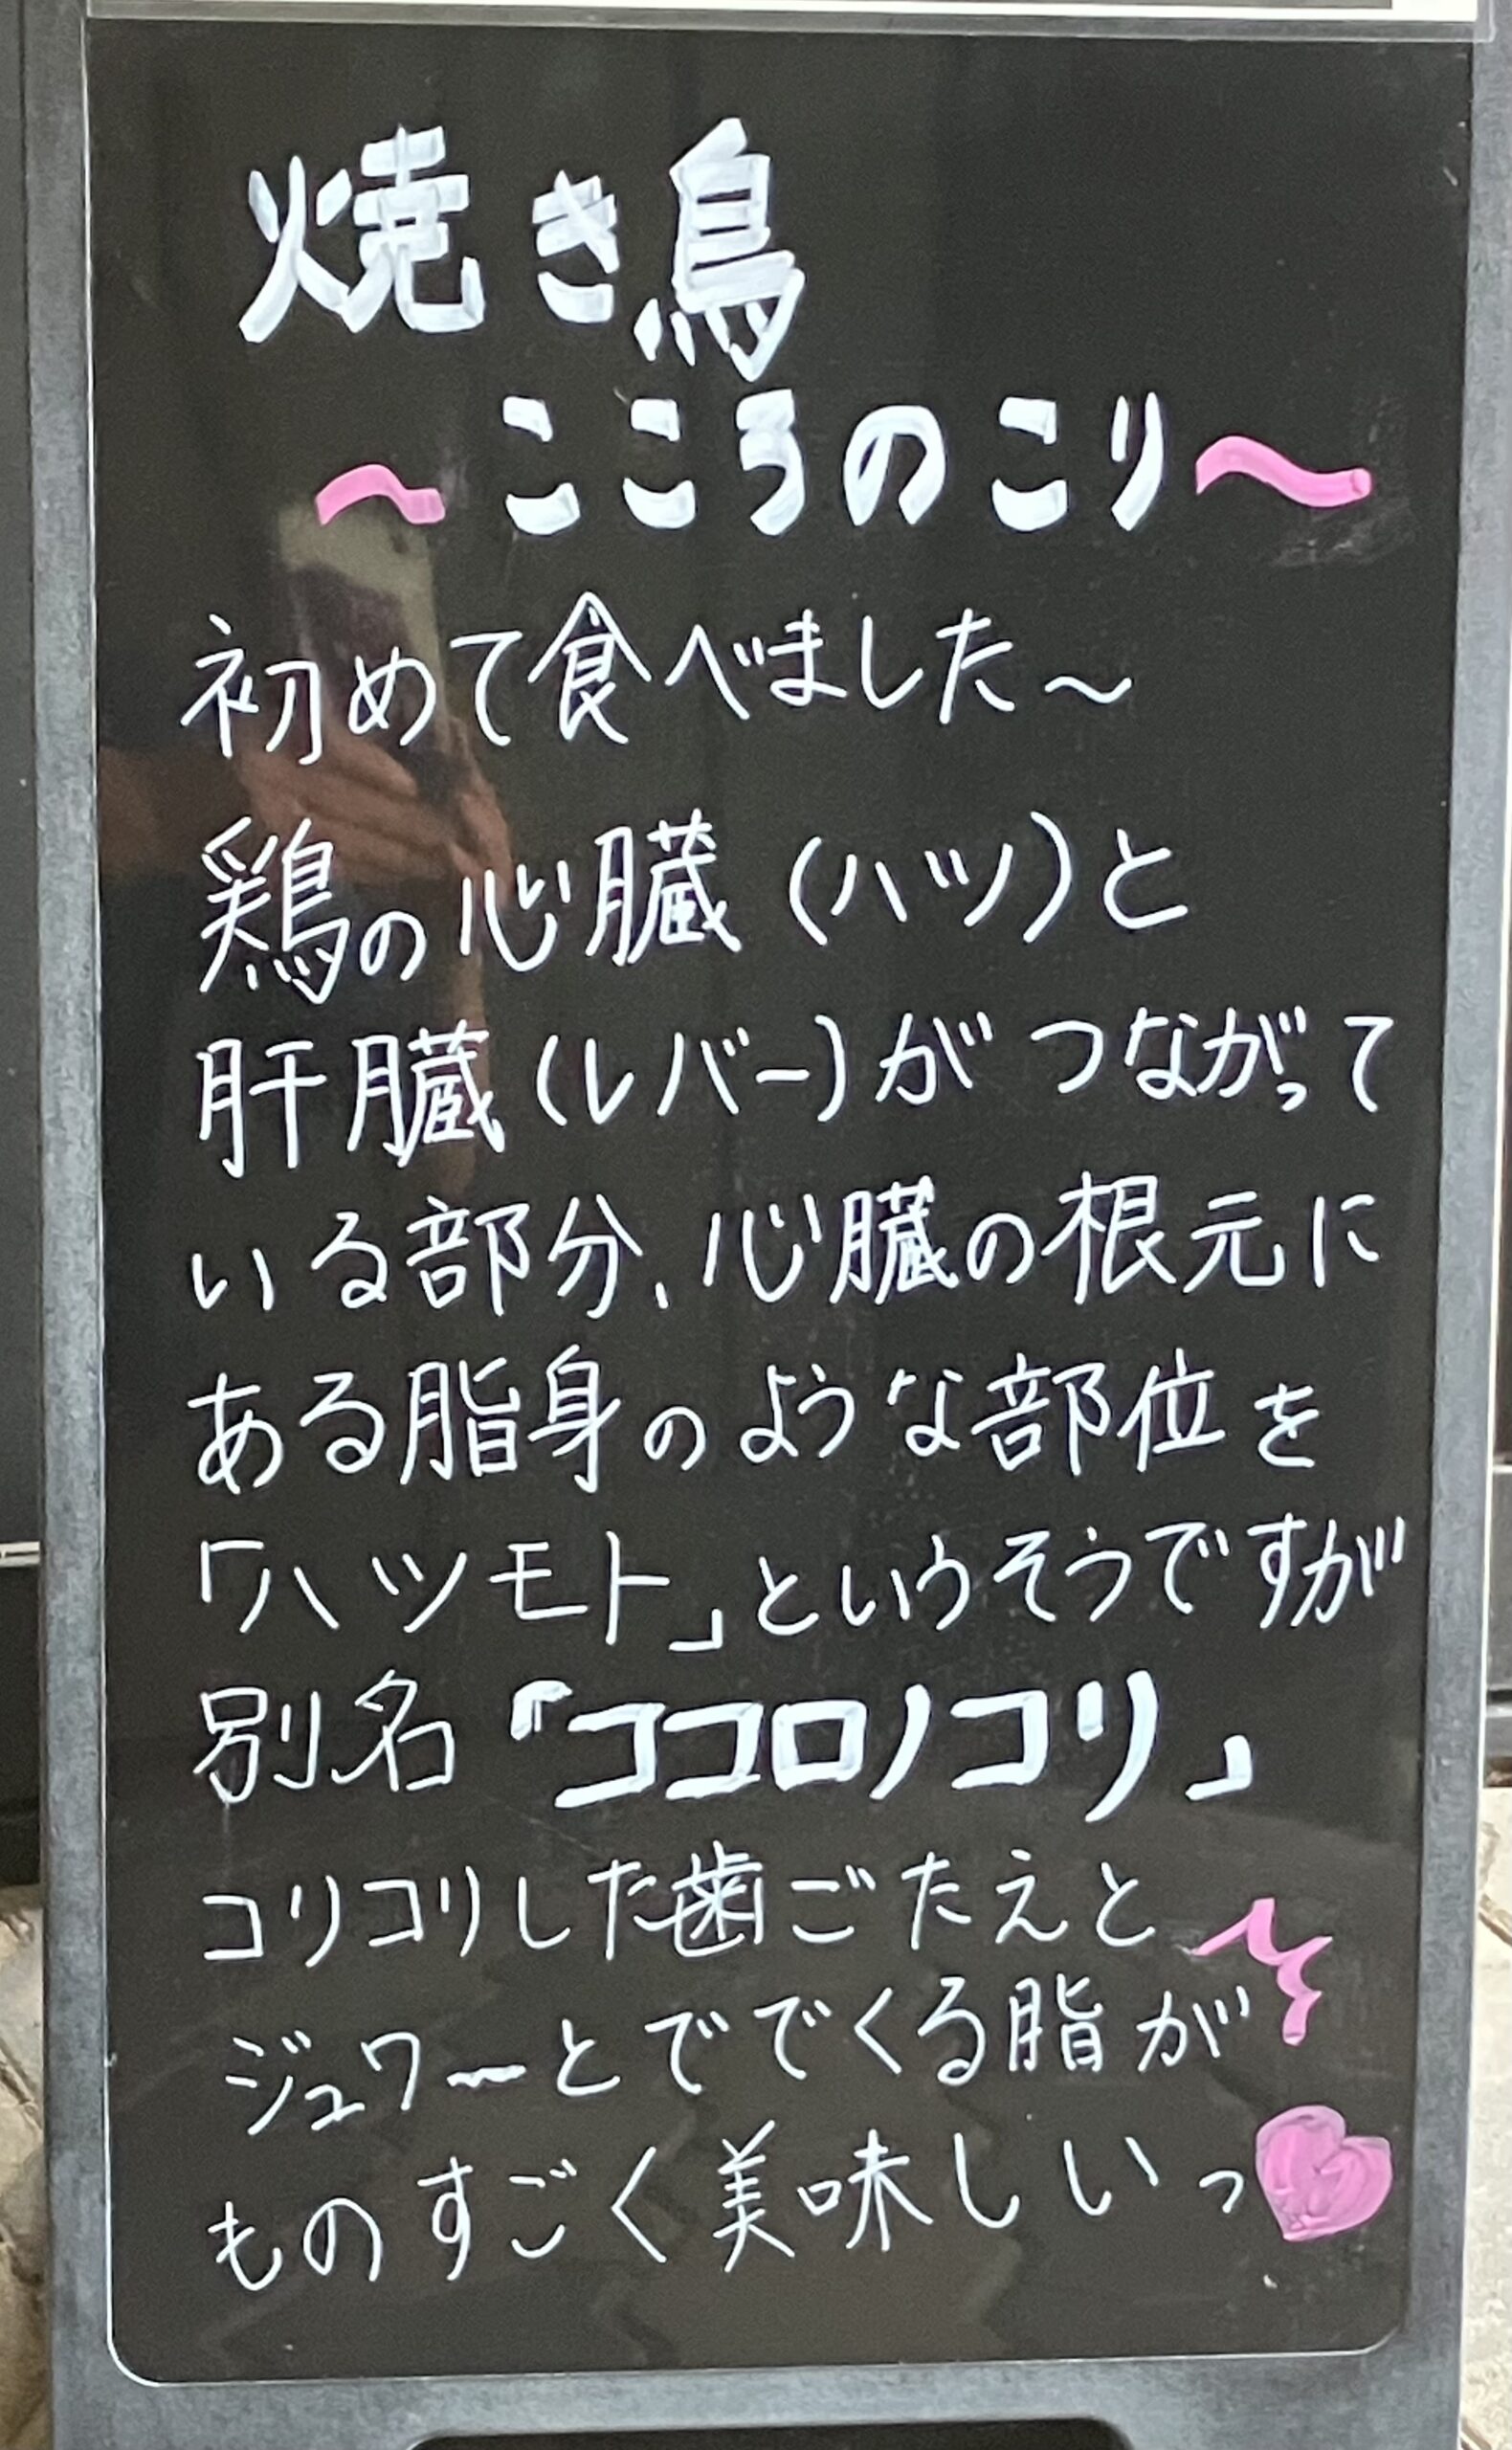 焼き鳥
～こころのこり～
初めて食べました～
鶏の心臓(ハツ)と
肝臓(レバー)がつながって
いる部分、心臓の根元に
ある脂身のような部位を
「ハツモト」というそうですが
別名「ココロノコリ」
コリコリした歯ごたえと
ジュワーとででくる脂が
ものすごく美味しいっ